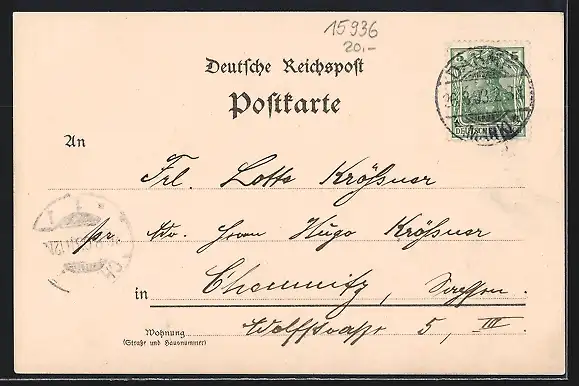 15936
20,-
Deutsche Reichspost
Postkarte
5 5
DEUTSCHES
An
Frl. Lotte Krößner
pr. Adr. Herrn Hugo Krößner
in Chemnitz, Sachsen.
Wohnung
(Straße und Hausnummer)
Wolfstraße 5, III